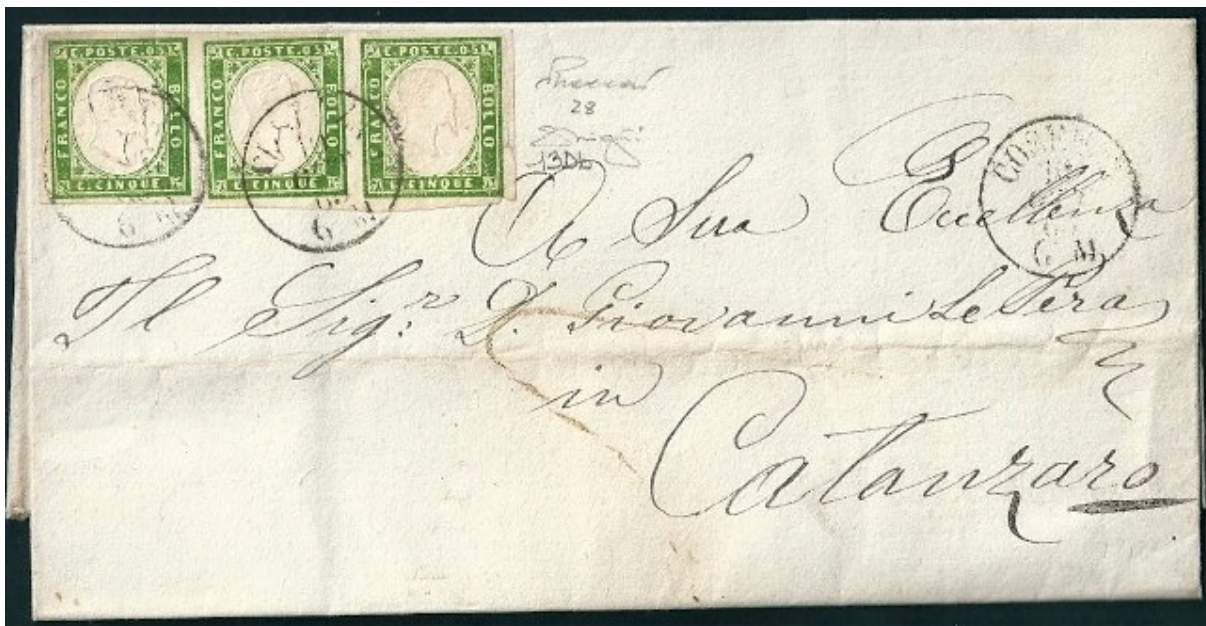 C. POSTE. 05
FRANCO
BOLLO
C. CINQUE
C. POSTE. 05
FRANCO
BOLLO
C. CINQUE
C. POSTE. 05
FRANCO
BOLLO
C. CINQUE
28
13Db
6 M
6 M
6 M
A Sua Eccellenza
Il Sig.r D. Giovanni Le Pera
in
Catanzaro